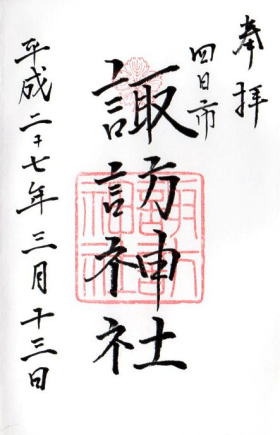 奉拝
四日市
諏訪神社
平成二十七年三月十三日
諏訪神社